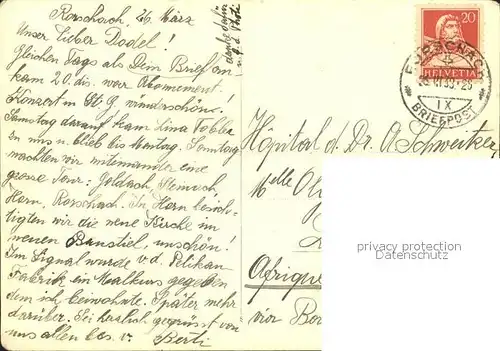 Rorschach, 26. März
Unser lieber Dodel!
Gleichen Tags als Dein Brief am
kam 20. dis. war Abonement
Konzert in St. G wunderschön!
Samstag darauf kam Lina Tobler
zu uns u. blieb bis Montag. Sonntag
machten wir miteinander eine
grosse Tour: Goldach, Steinach,
Horn, Rorschach. In Horn besich-
tigten wir die neue Kirche im
neuen Baustiel, unschön!
Im Signal wurde v. d. Pelikan
Fabrik ein Malkurs gegeben
dem ich beiwohnte. Später mehr
darüber. Sei herzlich gegrüsst von
uns allen bes. v. Berti
20
HELVETIA
RORSCHACH
IX
BRIEFPOST
Hôpital d. Dr. A. Schweitzer
Mlle
Afrique
privacy protection
Oldthing.com